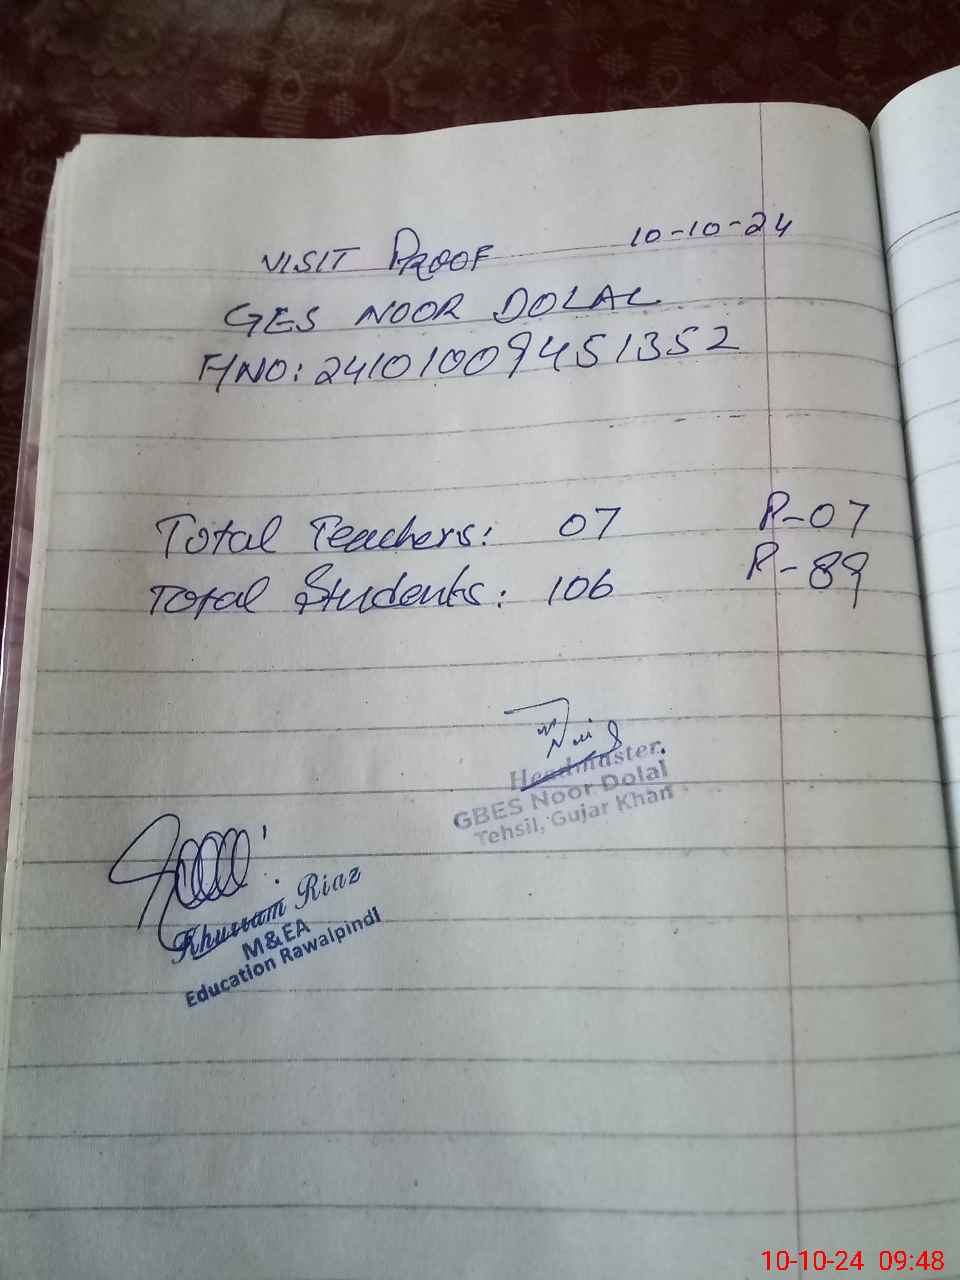 VISIT PROOF 10-10-24
GES NOOR DOLAL
F/NO: 24101009451352
Total Teachers: 07 P-07
Total Students: 106 P-89
Headmaster.
GBES Noor Dolal
Tehsil, Gujar Khan
Khurram Riaz
M&EA
Education Rawalpindi
10-10-24 09:48